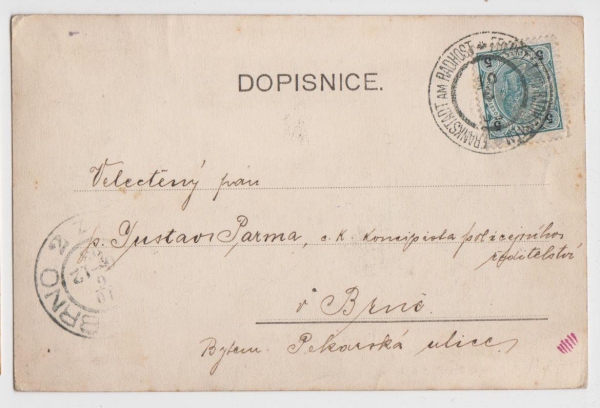 DOPISNICE.
FRANKSTADT AM RADHOST
5
5
Velectěný pán
p. Gustav Parma, c. k. koncipista policejního
ředitelství
v Brně.
Bytem. Pekařská ulice.
BRNO 2